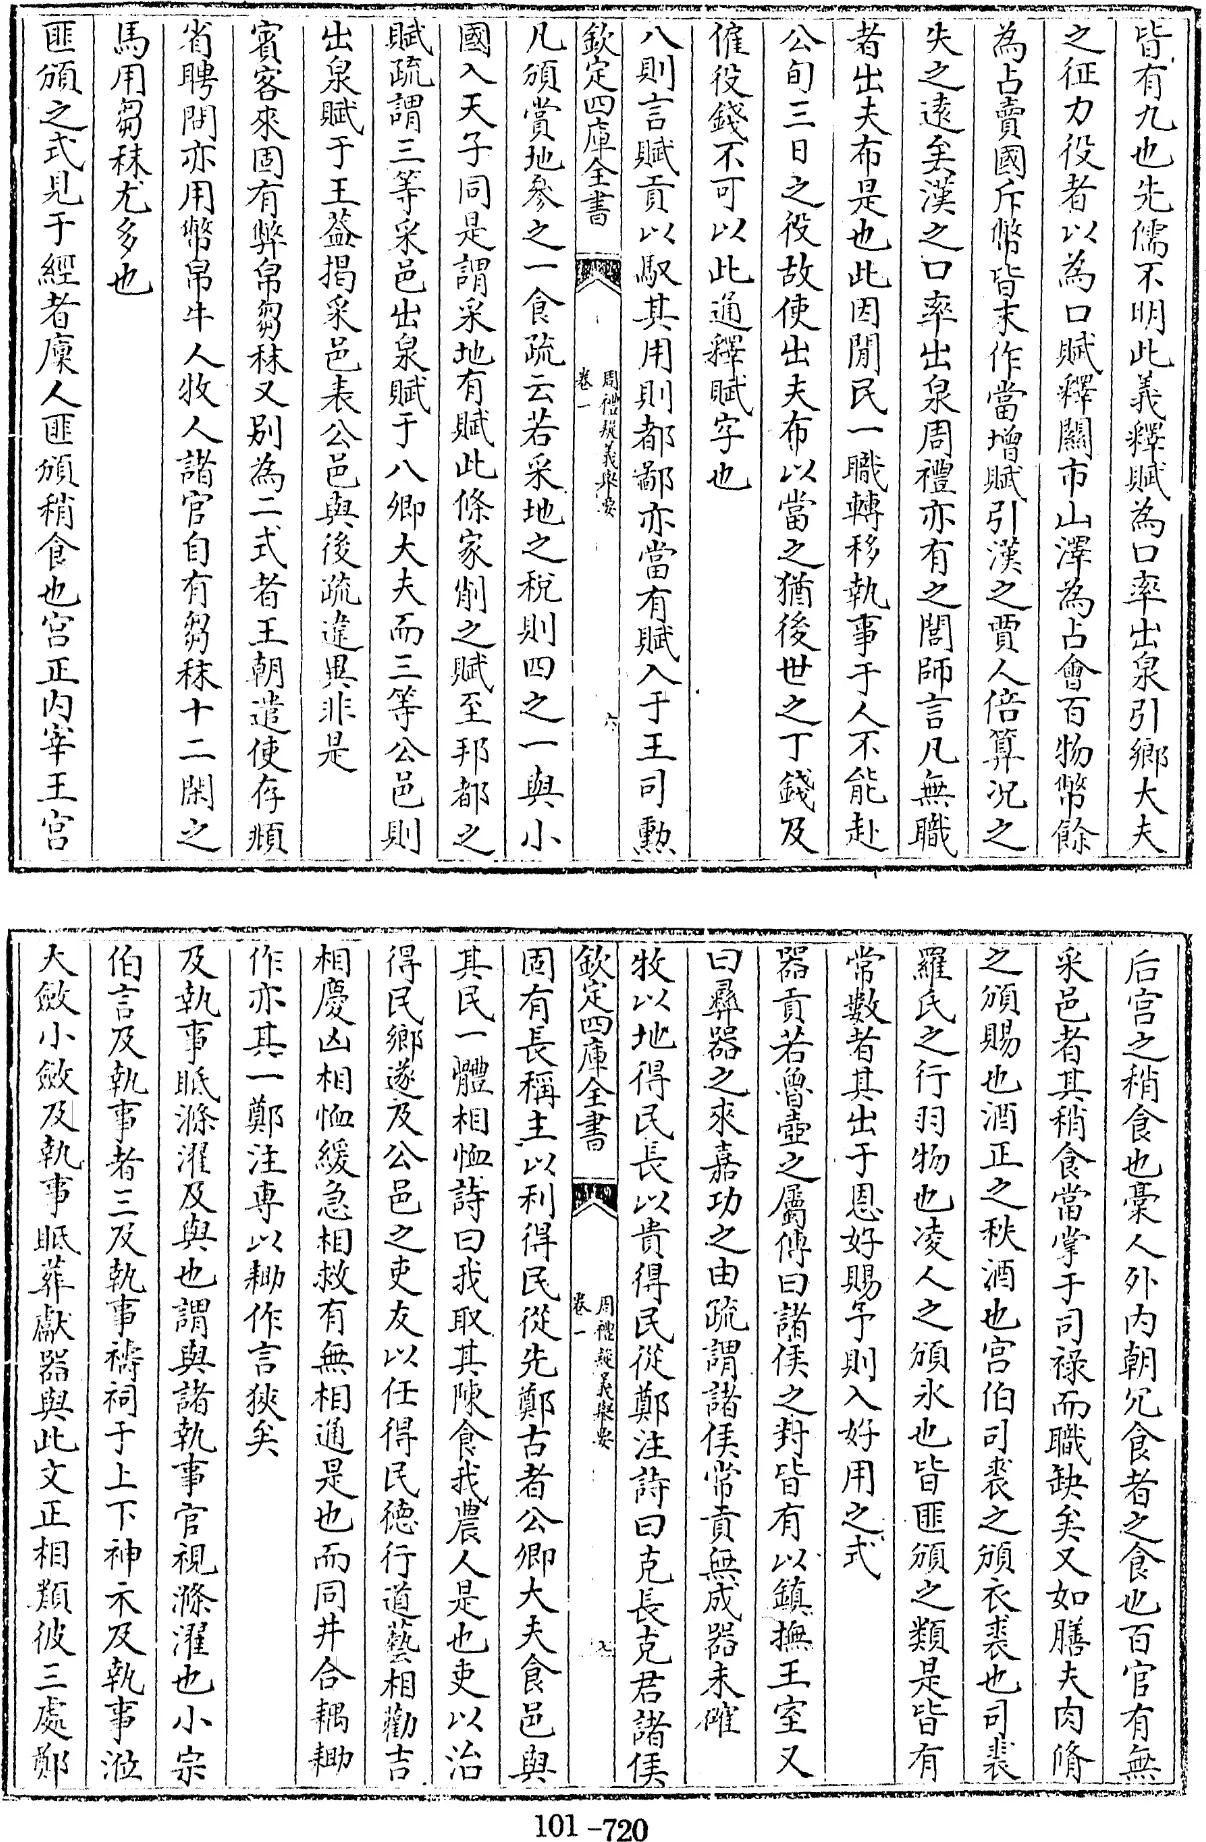 皆有九也先儒不明此義釋賦為口率出泉引鄉大夫
之征力役者以為口賦釋關市山澤為占會百物幣餘
為占賣國斥幣皆末作當增賦引漢之賈人倍算況之
失之遠矣漢之口率出泉周禮亦有之閭師言凡無職
者出夫布是也此因閒民一職轉移執事于人不能赴
公旬三日之役故使出夫布以當之猶後世之丁錢及
僱役錢不可以此通釋賦字也
八則言賦貢以馭其用則都鄙亦當有賦入于王司勲
欽定四庫全書
周禮疑義舉要
卷一
六
凡頒賞地參之一食疏云若采地之稅則四之一與小
國入天子同是謂采地有賦此條家削之賦至邦都之
賦疏謂三等采邑出泉賦于八卿大夫而三等公邑則
出泉賦于王葢揭采邑表公邑與後疏違異非是
賓客來固有幣帛芻秣又别為二式者王朝遣使存頫
省聘問亦用幣帛牛人牧人諸官自有芻秣十二閑之
馬用芻秣尤多也
匪頒之式見于經者廩人匪頒稍食也宫正内宰王宫
后宫之稍食也稾人外内朝冗食者之食也百官有無
采邑者其稍食當掌于司祿而職缺矣又如膳夫肉脩
之頒賜也酒正之秩酒也宫伯司裘之頒衣裘也司裘
羅氏之行羽物也凌人之頒氷也皆匪頒之類是皆有
常數者其出于恩好賜予則入好用之式
器貢若魯壺之屬傳曰諸侯之封皆有以鎮撫王室又
曰彞器之來嘉功之由疏謂諸侯常貢無成器未確
牧以地得民長以貴得民從鄭注詩曰克長克君諸侯
欽定四庫全書
周禮疑義舉要
卷一
七
固有長稱主以利得民從先鄭古者公卿大夫食邑與
其民一體相恤詩曰我取其陳食我農人是也吏以治
得民鄉遂及公邑之吏友以任得民德行道藝相勸吉
相慶凶相恤緩急相救有無相通是也而同井合耦耡
作亦其一鄭注専以耡作言狹矣
及執事眡滌濯及與也謂與諸執事官視滌濯也小宗
伯言及執事者三及執事禱祠于上下神示及執事涖
大斂小斂及執事眡葬獻器與此文正相類彼三處鄭
101-720